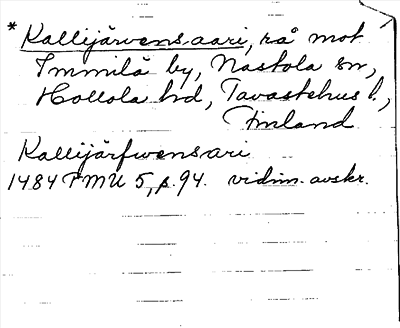 * Kallijärvensaari, rå mot
Immilä by, Nastola sn,
Hollola hd, Tavastehus l.,
Finland
Kallijärfwensari
1484 FMU 5, s. 94. vidim. avskr.